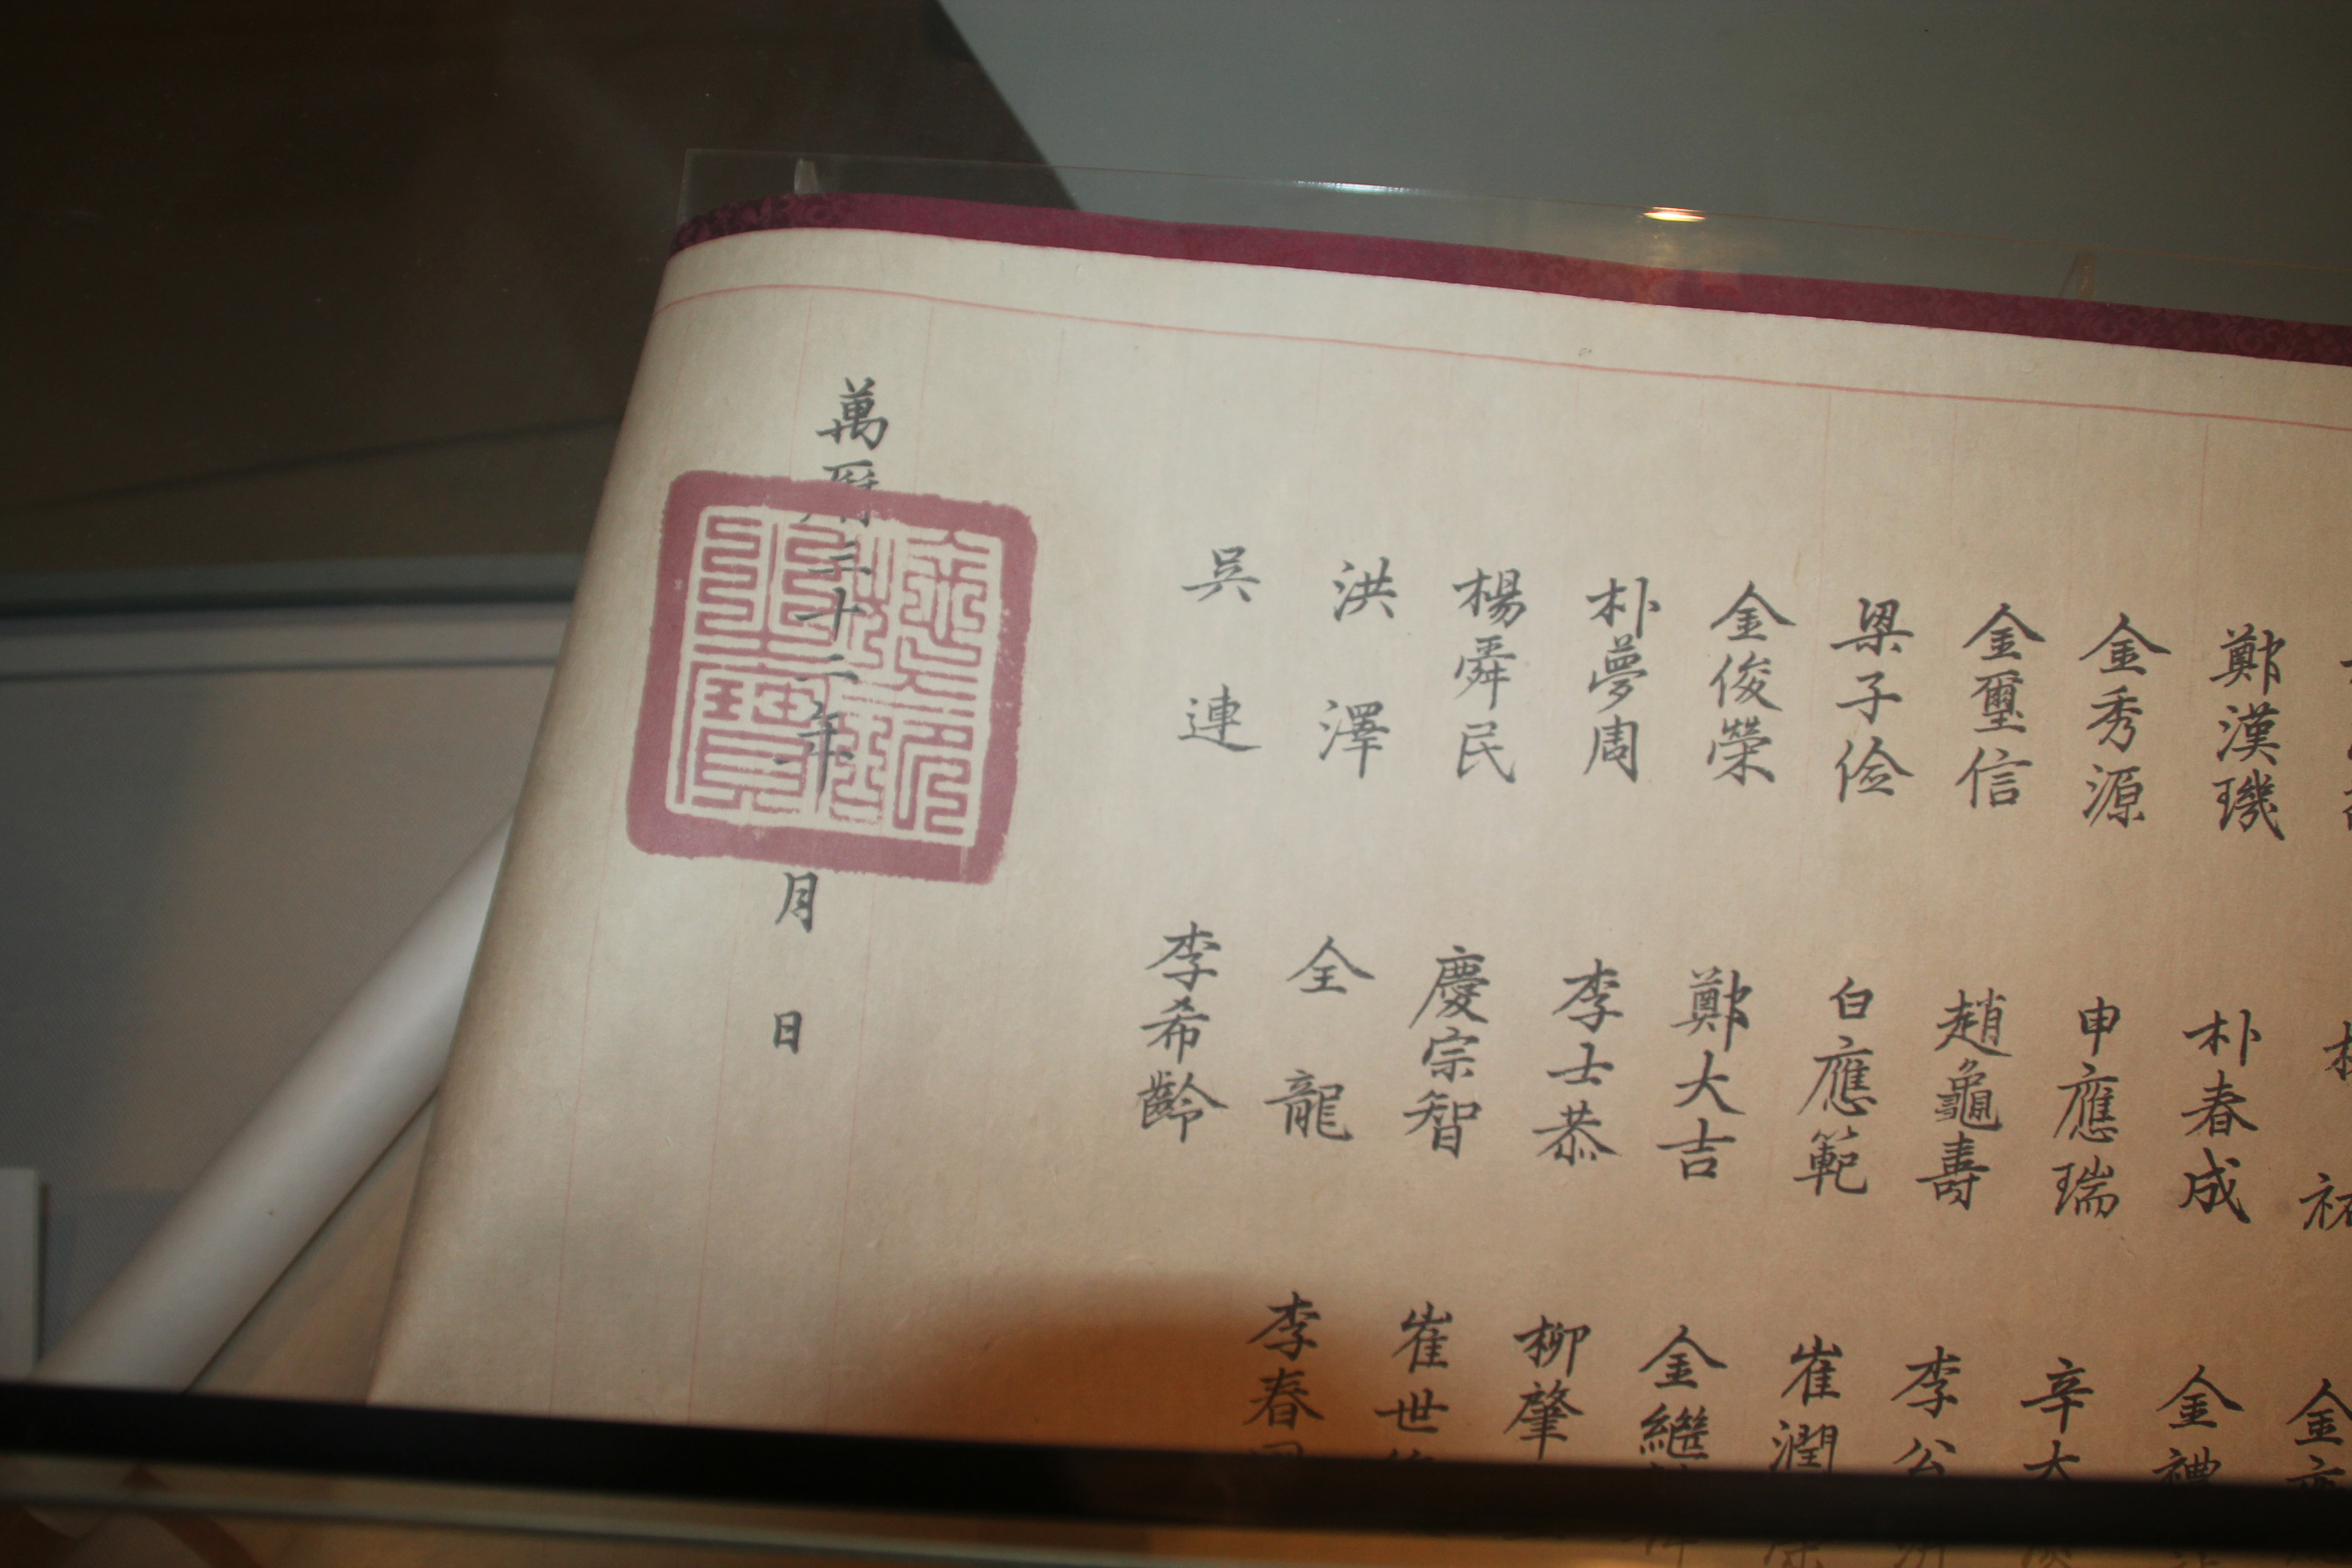 鄭漢璣 朴春成 金禮
金秀源 申應瑞 辛大
金璽信 趙龜壽 李公
梁子儉 白應範 崔潤
金俊榮 鄭大吉 金繼
朴夢周 李士恭 柳肇
楊舜民 慶宗智 崔世
洪澤 全龍 李春
吳連 李希齡
萬曆三十二年 月 日